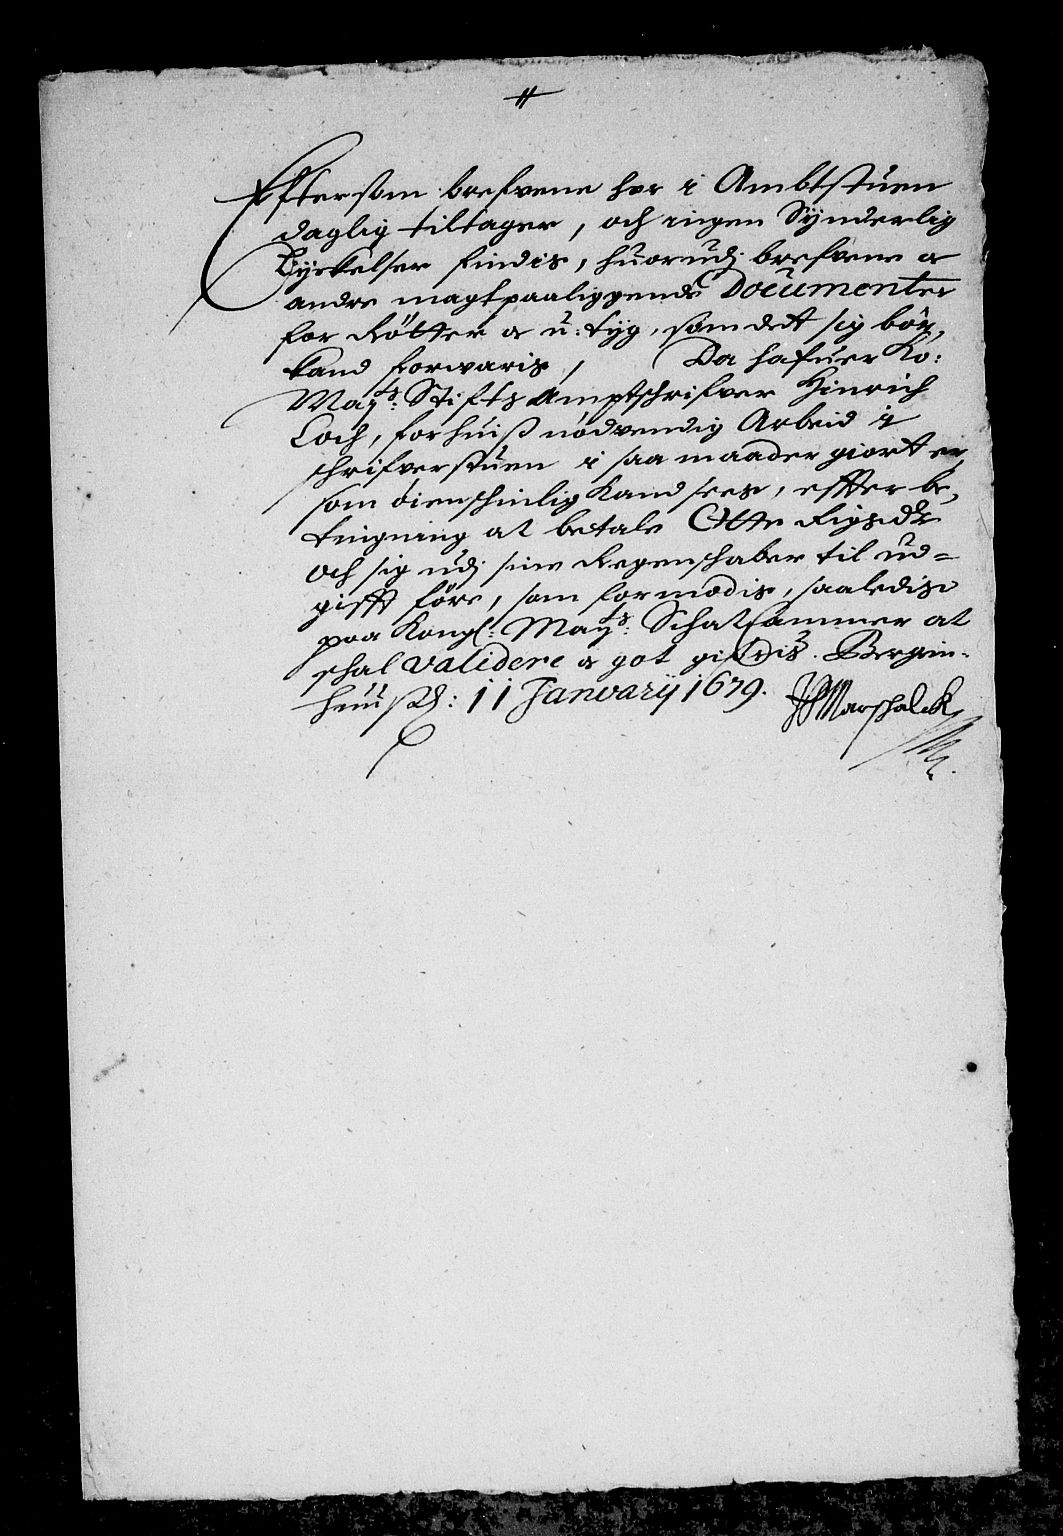 Eftersom brefvene her i Ambtstuen
daglig tiltager, och ingen Synderlig
findis, huorudj brefvene &
andre magtpaaliggende Documenter
for Rötter & u:tyg, som det sig bör,
kand forwaris, Da hafuer Ko:
Mayts: Stifts Amptschrifver Hinrich
Loch, for huiss nödvendig Arbeid i
schrifverstuen i saa maader giort er,
som öienschinlig kand sees, effter be,
tingning at betale Otte Rigsdr
och sig udj sine Regenschaber til ud=
gifft före, som formodis, saaledis
paa Kongl: Mayts: Schatkammer at
schal validere & got giöris. Bergen-
huus: 11 January 1679. Marschalck